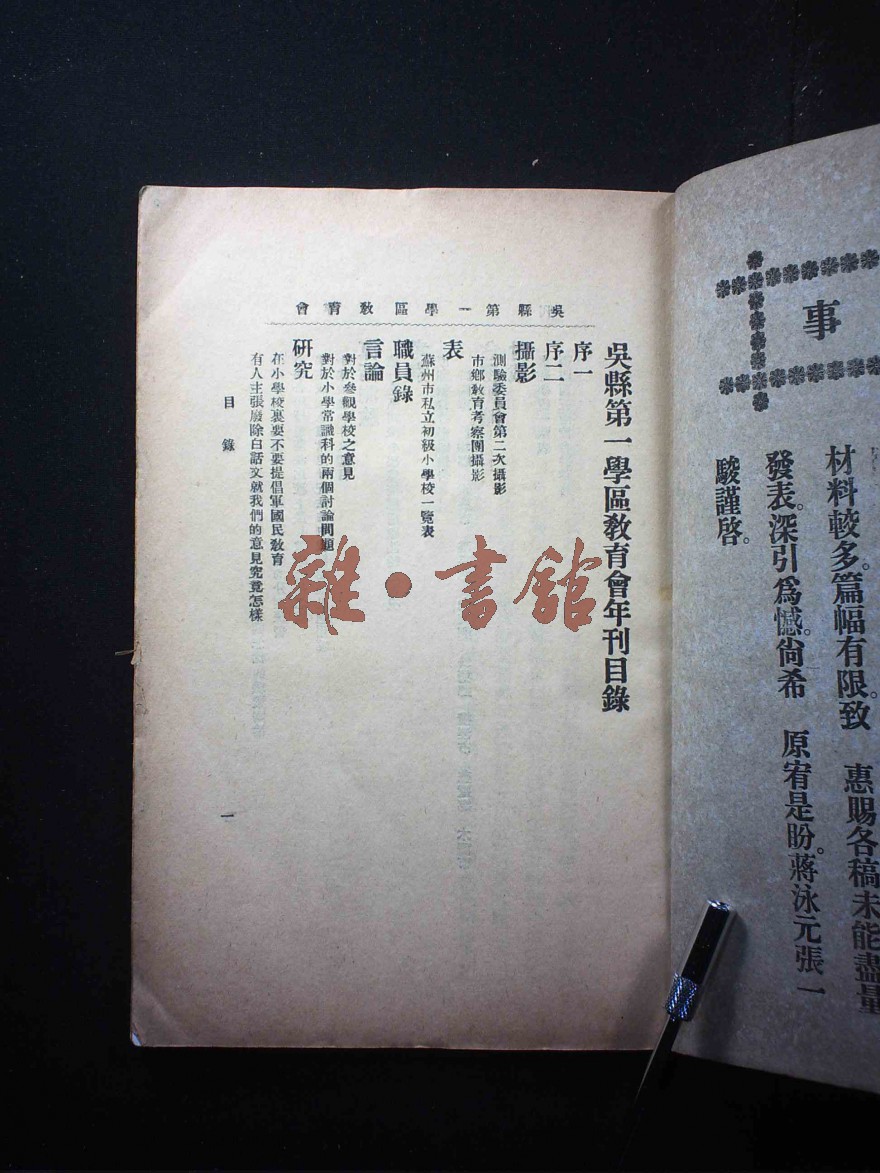 事
材料較多。篇幅有限。致 惠賜各稿未能盡量
發表。深引爲憾。尙希 原宥是盼。蔣泳元張一
駿謹啓。
吳縣第一學區敎育會
吳縣第一學區敎育會年刊目錄
序一
序二
攝影
測驗委員會第二次攝影
市鄉敎育考察團攝影
表
蘇州市私立初級小學校一覽表
職員錄
言論
對於參觀學校之意見
對於小學常識科的兩個討論問題
硏究
在小學校裏要不要提倡軍國民敎育
有人主張廢除白話文就我們的意見究竟怎樣
目錄
一
雜·書館